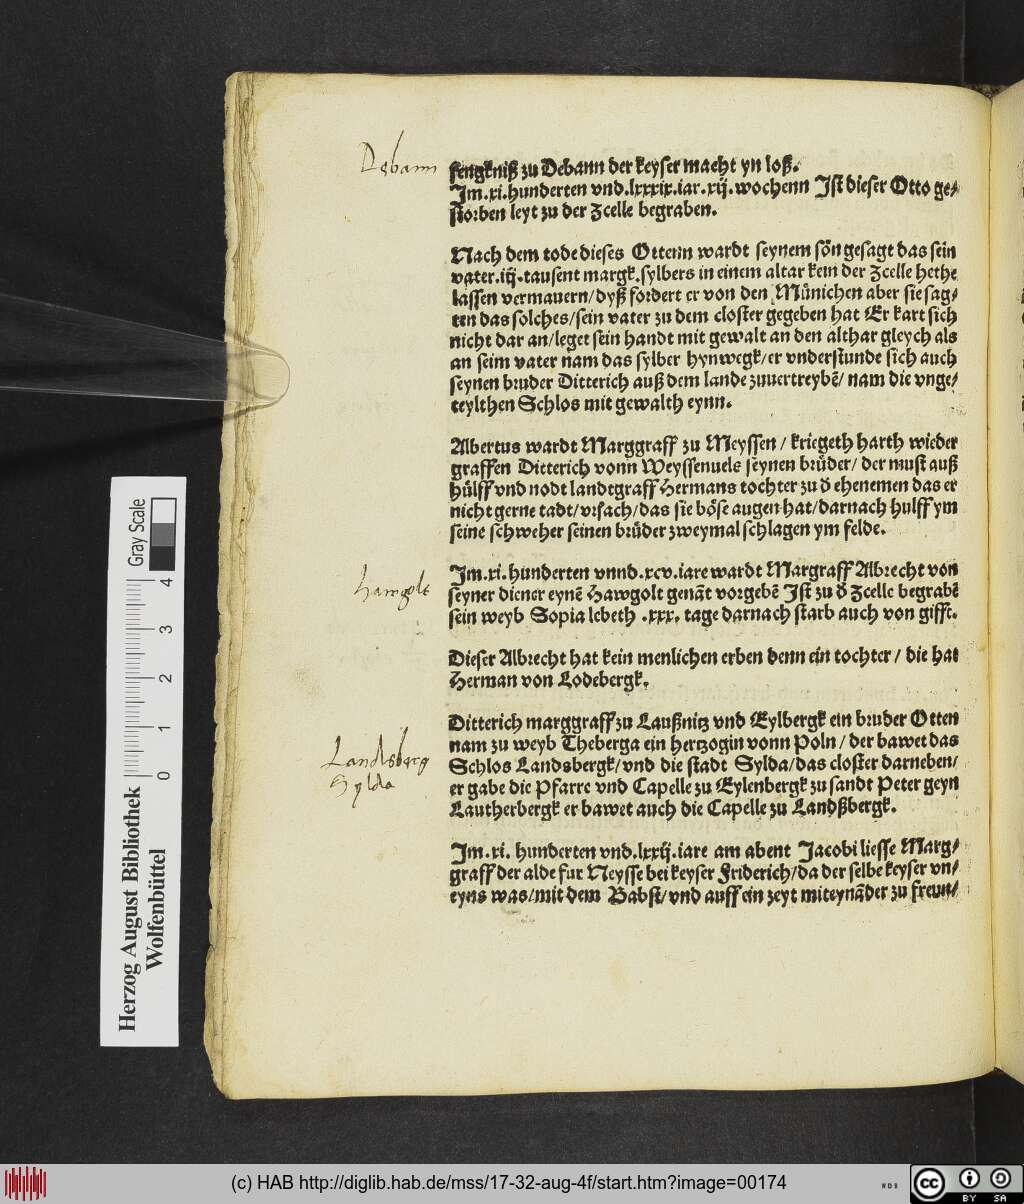 Debann
fengkniß zu Debann der keyser macht yn loß.
Im.xi.hunderten vnd.lxxxix.iar.xij.wochenn Ist dieser Otto ge/
storben leyt zu der Zcelle begraben.
Nach dem tode dieses Ottenn wardt seynem sön gesagt das sein
vater.iij.tausent margk.sylbers in einem altar kein der Zcelle hethe
lassen vermauern/dyß fordert er von den Münichen aber sie sag/
ten das solches/sein vater zu dem closter gegeben hat Er kart sich
nicht dar an/leget sein handt mit gewalt an den althar gleych als
an seim vater nam das sylber hynwegk/er vnderstunde sich auch
seynen bruder Ditterich auß dem lande zuuertreybē/ nam die vnge/
teylthen Schlos mit gewalth eynn.
Albertus wardt Marggraff zu Meyssen / kriegeth harth wieder
graffen Ditterich vonn Weyssenuels seynen brüder/ der must auß
hülff vnd nodt landtgraff Hermans tochter zu d̄ ehe nemen das er
nicht gerne tadt/vrsach/das sie böse augen hat/darnach hulff ym
seine schweher seinen brüder zweymal schlagen ym felde.
Hawgolt
Im.xi.hunderten vnnd.xcv.iare wardt Margraff Albrecht von
seyner diener eynē Hawgolt genāt vorgebē Ist zu d̄ Zcelle begrabē
sein weyb Sopia lebeth .xxx. tage darnach starb auch von gifft.
Dieser Albrecht hat kein menlichen erben denn ein tochter / die hat
Herman von Lodebergk.
Ditterich marggraff zu Laußnitz vnd Eylbergk ein bruder Otten
nam zu weyb Theberga ein hertzogin vonn Poln / der bawet das
Landsberg
Schlos Landsbergk/vnd die stadt Sylda/das closter darneben/
Sylda
er gabe die Pfarre vnd Capelle zu Eylenbergk zu sandt Peter geyn
Lautherbergk er bawet auch die Capelle zu Landßbergk.
Im.xi. hunderten vnd.lxxij.iare am abent Jacobi liesse Marg/
graff der alde fur Neysse bei keyser Friderich/da der selbe keyser vn/
eyns was/mit dem Babst/vnd auff ein zeyt miteynāder zu freun/
Herzog August Bibliothek
Wolfenbüttel
Gray Scale
0 1 2 3 4
(c) HAB http://diglib.hab.de/mss/17-32-aug-4f/start.htm?image=00174
WDB
cc BY SA